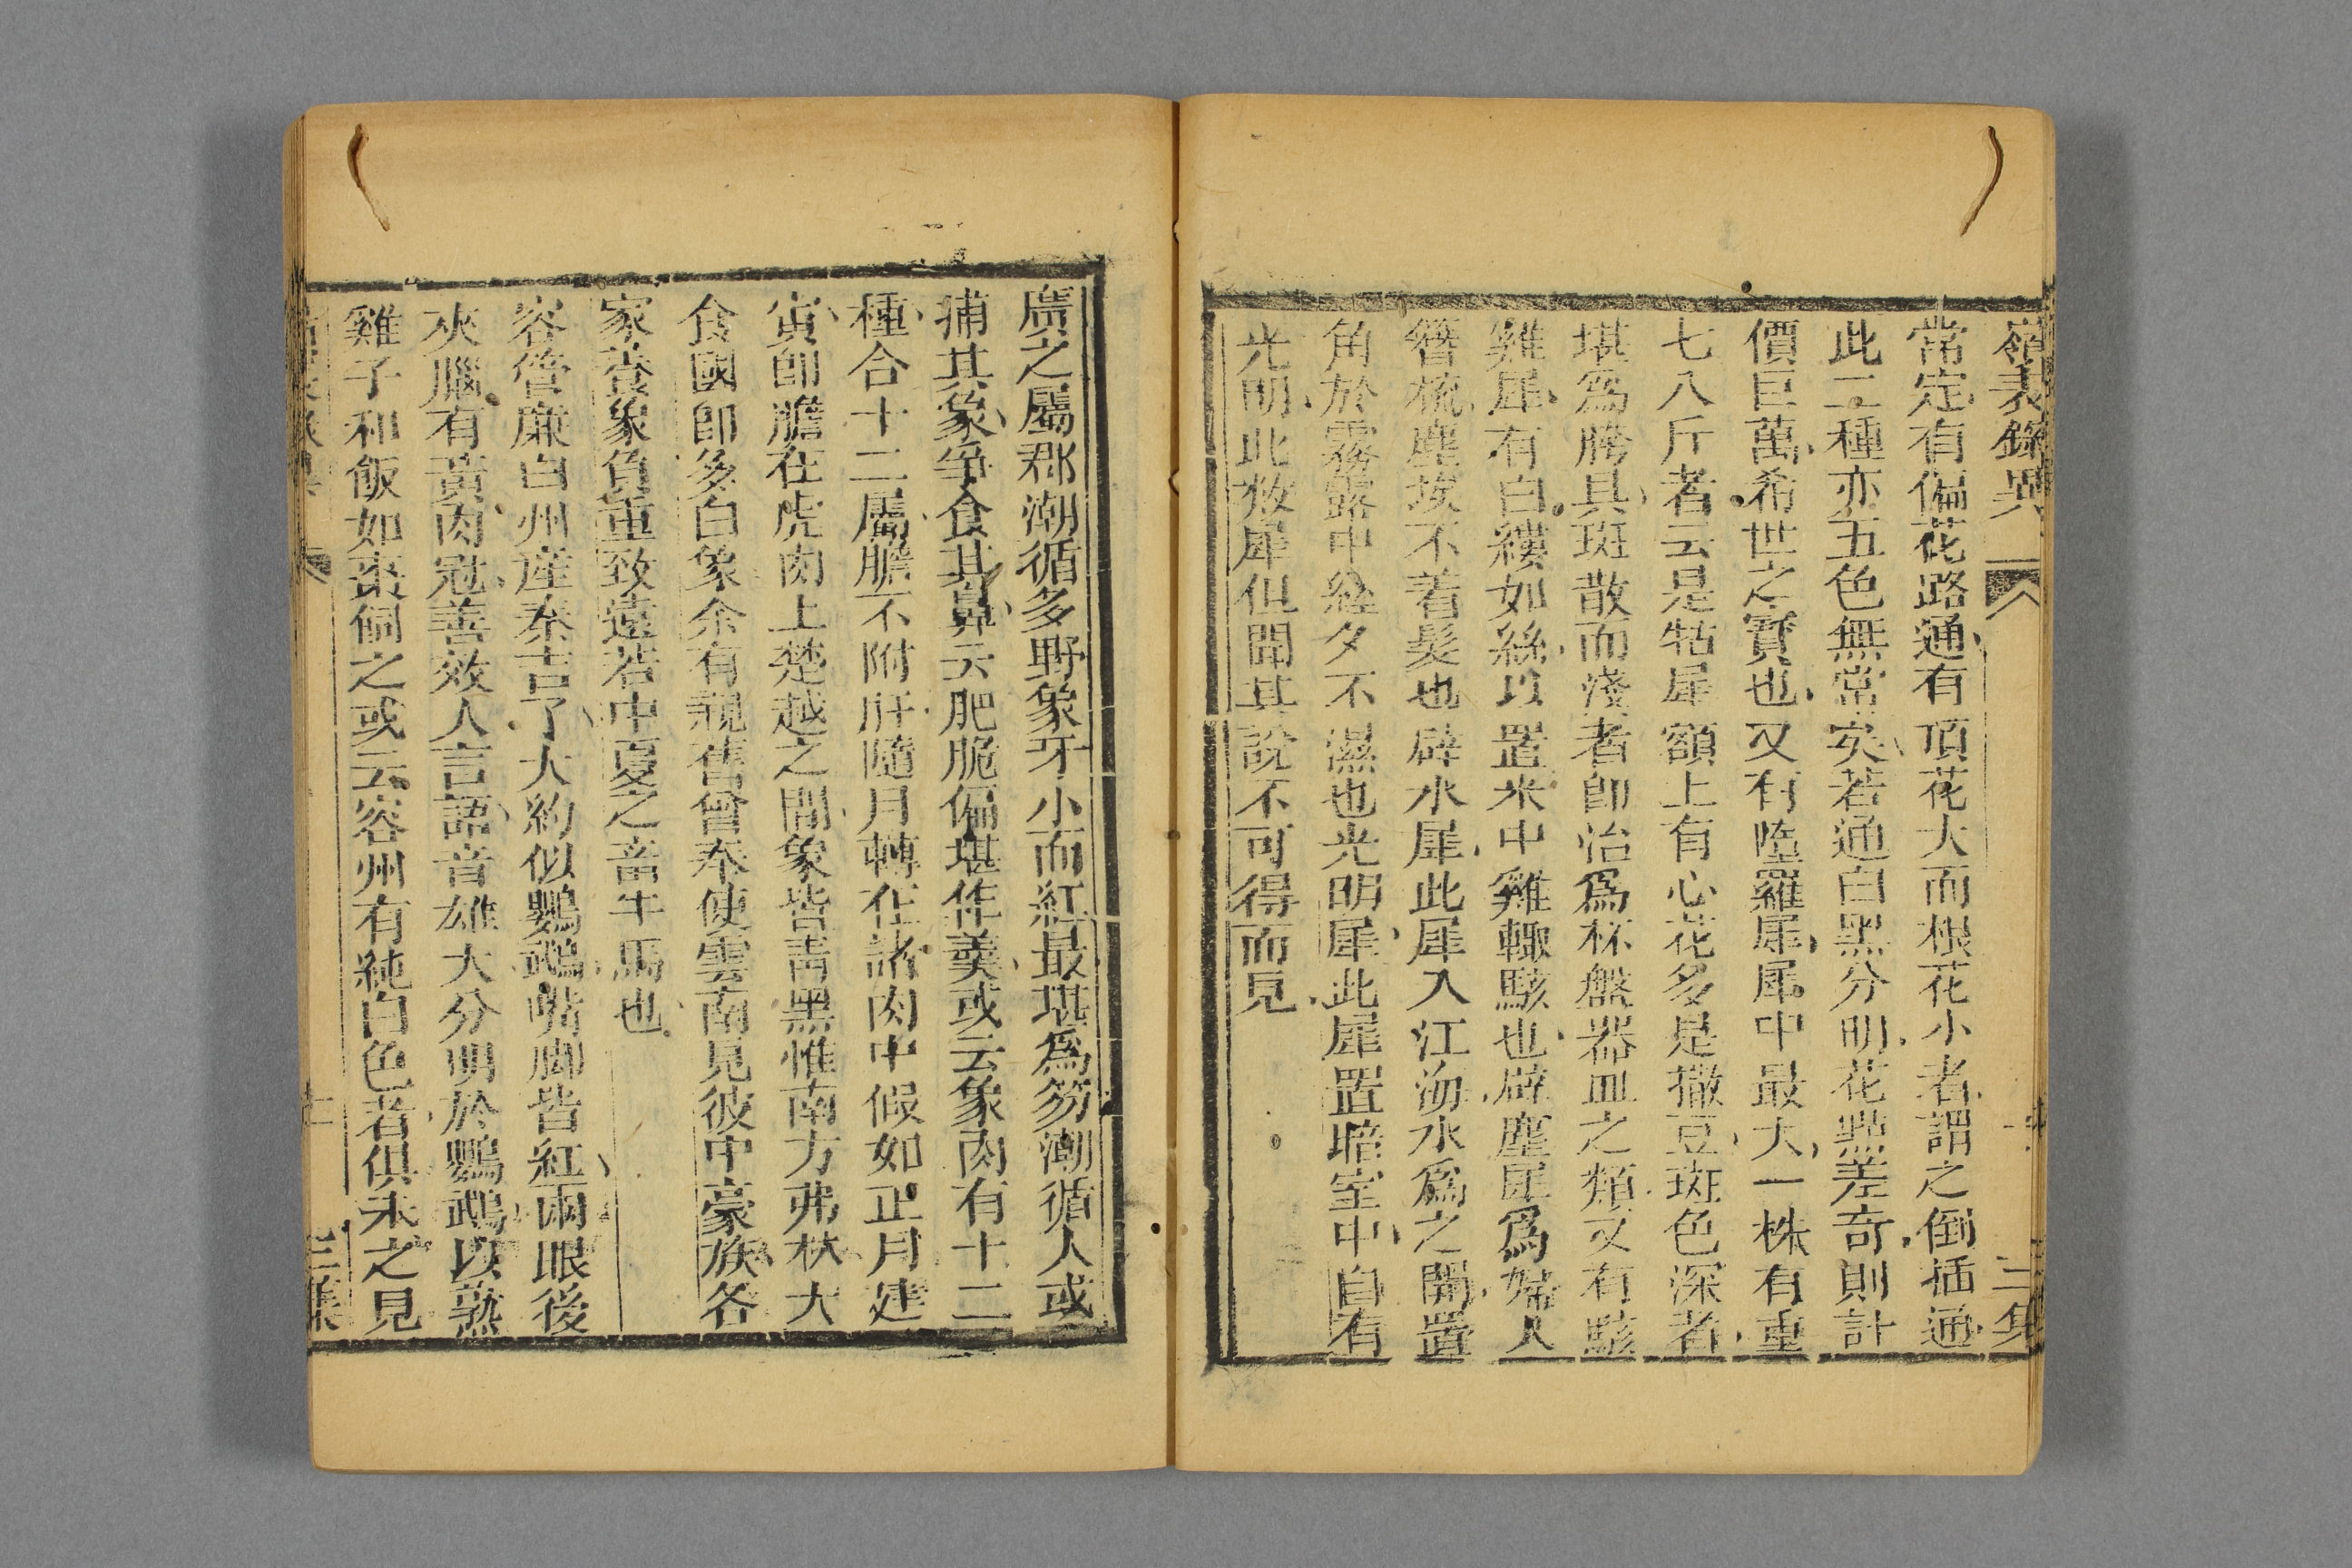 嶺表錄異
三集
常定有偏花路通有頂花大而根花小者謂之倒插通
此二種亦五色無常矣若通白黑分明花點差奇則計
價巨萬希世之寶也又有墮羅犀犀中最大一株有重
七八斤者云是牯犀額上有心花多是撒豆斑色深者
堪爲胯具斑散而淺者卽治爲杯盤器皿之類又有駭
雞犀有白縷如絲以置米中雞輒駭也辟塵犀爲婦人
簪梳塵埃不着髮也辟水犀此犀入江海水爲之開置
角於霧露中經夕不濕也光明犀此犀置暗室中自有
光明此數犀但聞其說不可得而見
廣之屬郡潮循多野象牙小而紅最堪爲笏潮循人或
捕其象爭食其鼻云肥脆偏堪作羹或云象肉有十二
種合十二屬膽不附肝隨月轉在諸肉中假如正月建
寅卽膽在虎肉上楚越之間象皆靑黑惟南方弗林大
食國卽多白象余有親舊曾奉使雲南見彼中豪族各
家養象負重致遠若中夏之畜牛馬也
容管廉白州產秦吉了大約似鸚鵡嘴脚皆紅兩眼後
夾腦有黃肉冠善效人言語音雄大分明於鸚鵡以熟
雞子和飯如棗飼之或云容州有純白色者俱未之見
三集